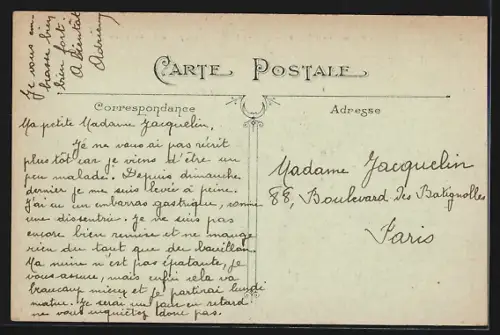 CARTE POSTALE
Correspondance
Adresse
Ma petite Madame Jacquelin,
Je ne vous ai pas récrit
plus tôt car je viens d'être un
peu malade. Depuis dimanche
dernier je me suis levée à peine.
J'ai eu un embarras gastrique, comme
une dissentrie. Je ne suis pas
encore bien remise et ne mange
rien du tout que du bouillon.
Ma mine n'est pas épatante, je
vous assure, mais enfin cela va
beaucoup mieux et je partirai lundi
matin. Je serai un jour en retard
ne vous inquiétez donc pas.
Je vous em-
brasse bien
bien fort.
A bientôt
Madame Jacquelin
88, Boulevard des Batignolles
Paris